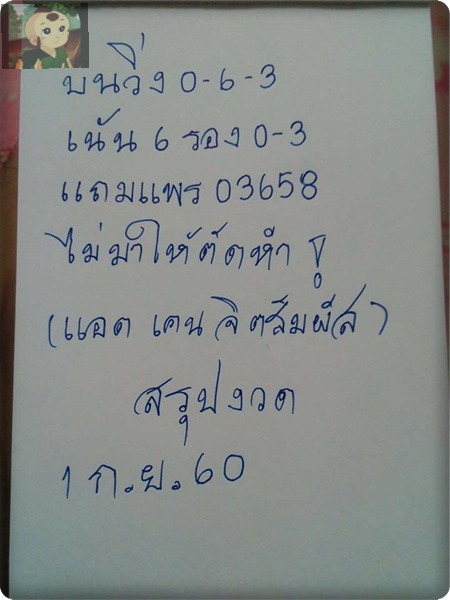 บนวิ่ง 0-6-3
เน้น 6 รอง 0-3
แถมแพร 03658
ไม่มาให้ตัดหำ
(แอด เคน จิตสัมผัส)
สรุปงวด
1 ก.ย.60